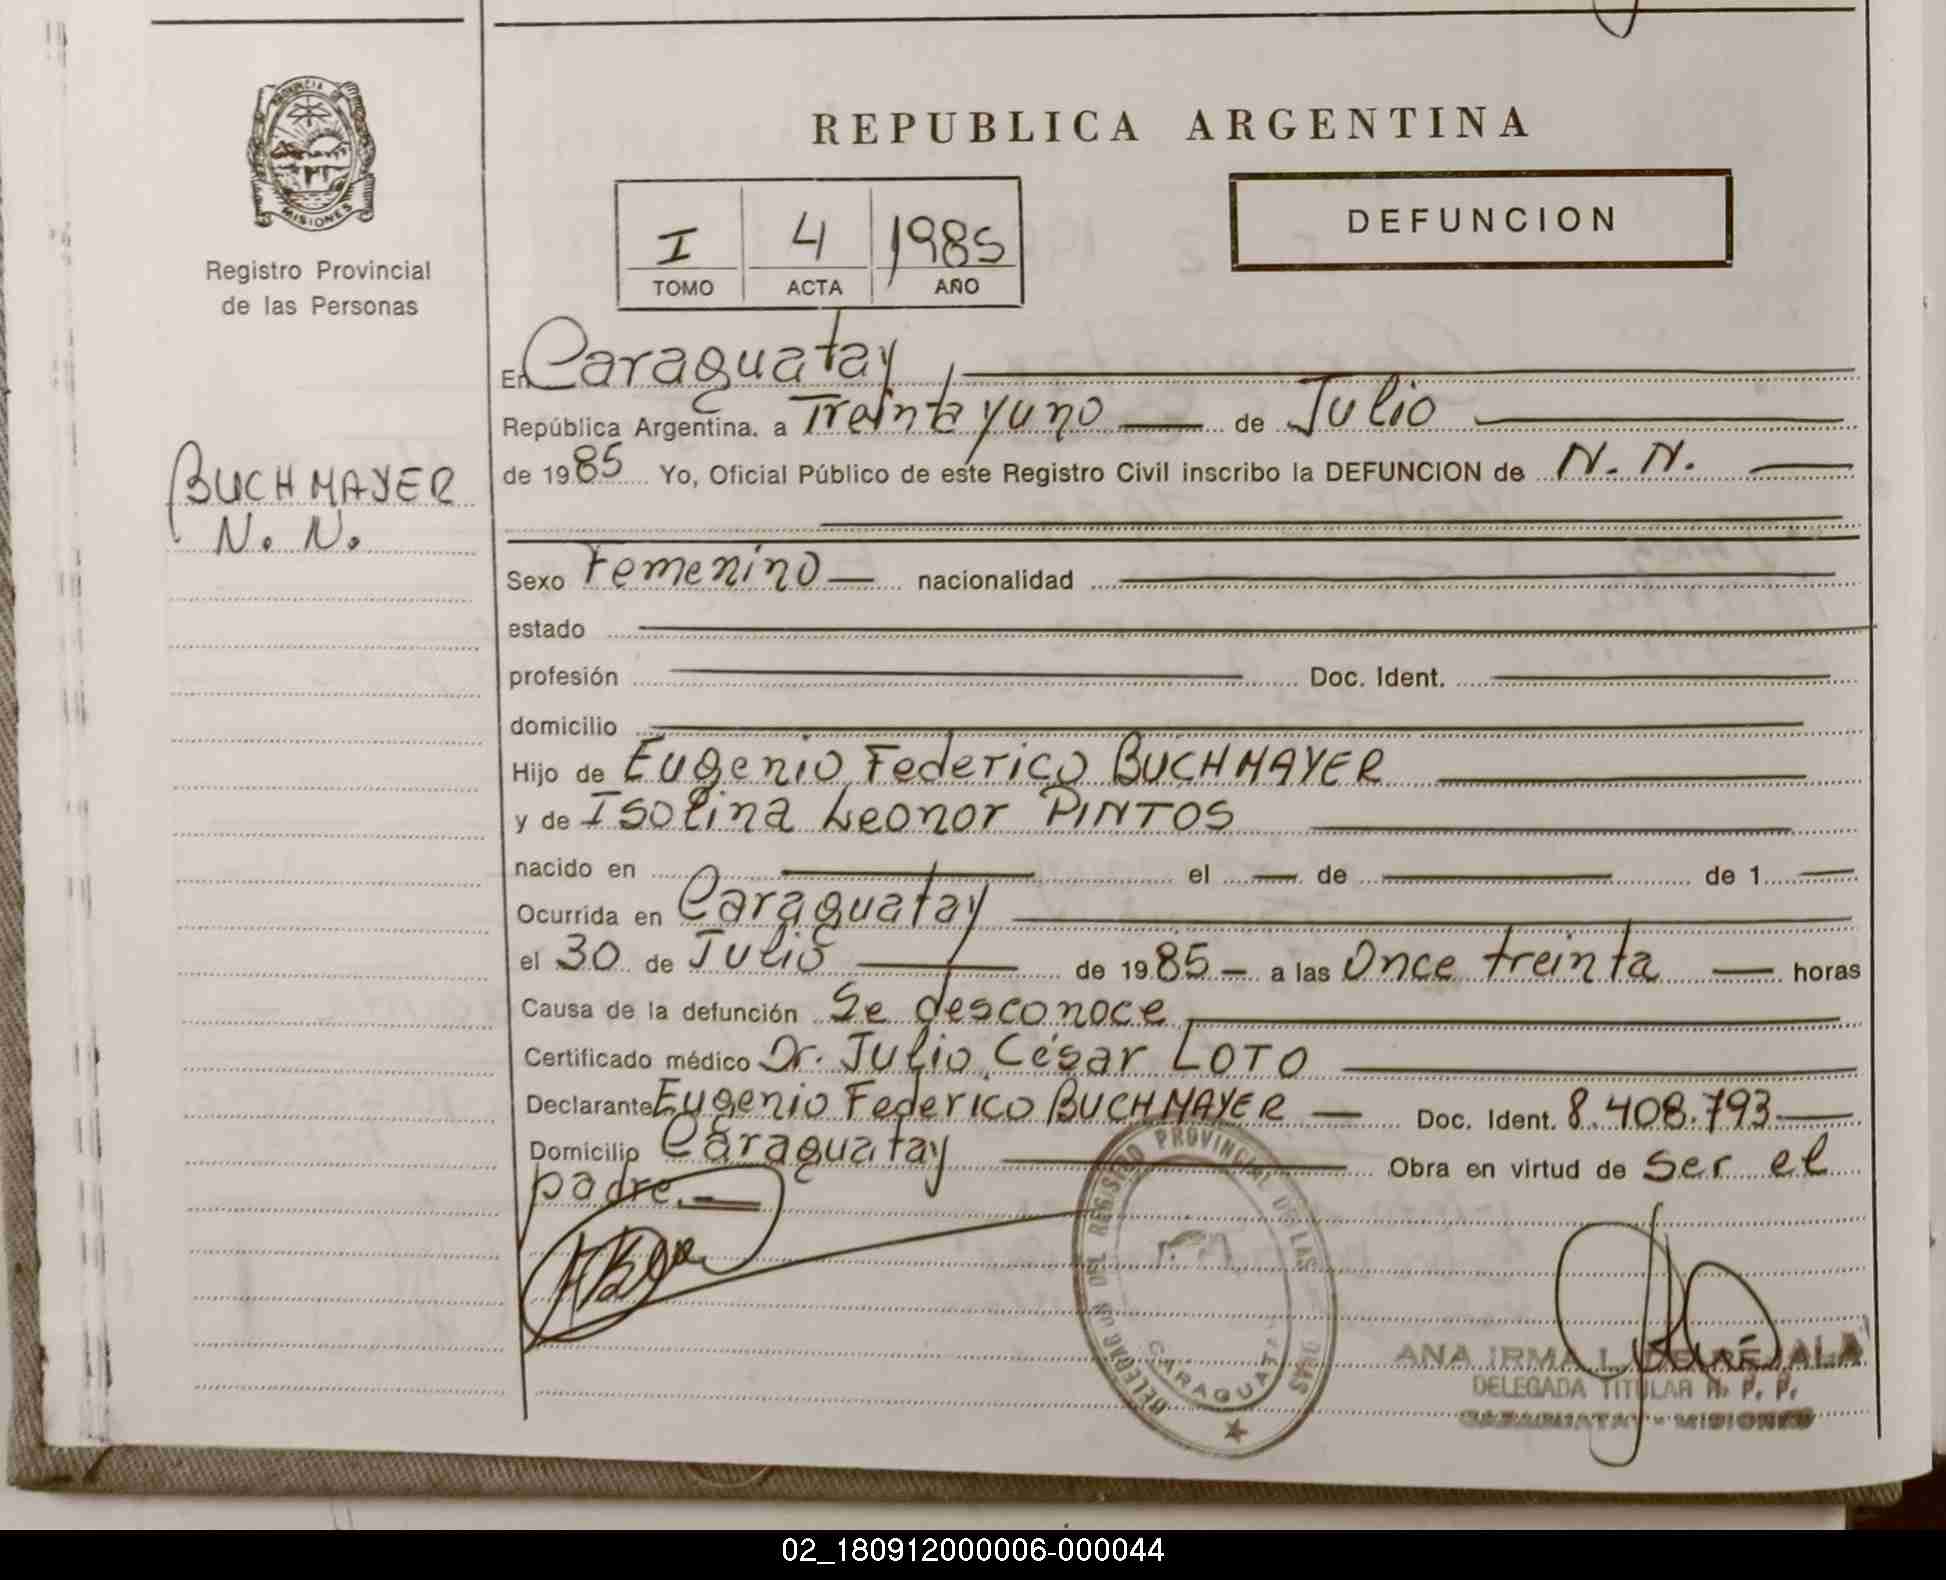 REPUBLICA ARGENTINA
PROVINCIA DE
MISIONES
Registro Provincial
de las Personas
I 4 1985
TOMO ACTA AÑO
DEFUNCION
BUCHMAYER
N. N.
En Caraguatay
República Argentina. a Treinta y uno de Julio
de 1985 Yo, Oficial Público de este Registro Civil inscribo la DEFUNCION de N. N.
Sexo Femenino nacionalidad
estado
profesión Doc. Ident.
domicilio
Hijo de Eugenio Federico BUCHMAYER
y de Isolina Leonor PINTOS
nacido en el de de 1
Ocurrida en Caraguatay
el 30 de Julio de 1985 a las Once treinta horas
Causa de la defunción Se desconoce
Certificado médico Dr. Julio César LOTO
Declarante Eugenio Federico BUCHMAYER Doc. Ident. 8.408.793
Domicilio Caraguatay Obra en virtud de ser el
padre.
REGISTRO PROVINCIAL DE LAS
CARAGUATAY
ANA IRMA L. DE
DELEGADA TITULAR R. P. P.
CARAGUATAY - MISIONES
02_180912000006-000044